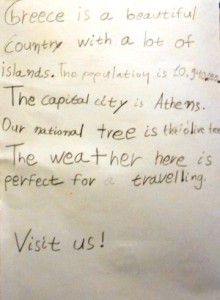 Greece is a beautiful
country with a lot of
islands. The population is
The capital city is Athens.
Our national tree is the olive tree
The weather here is
perfect for a travelling.
Visit us!